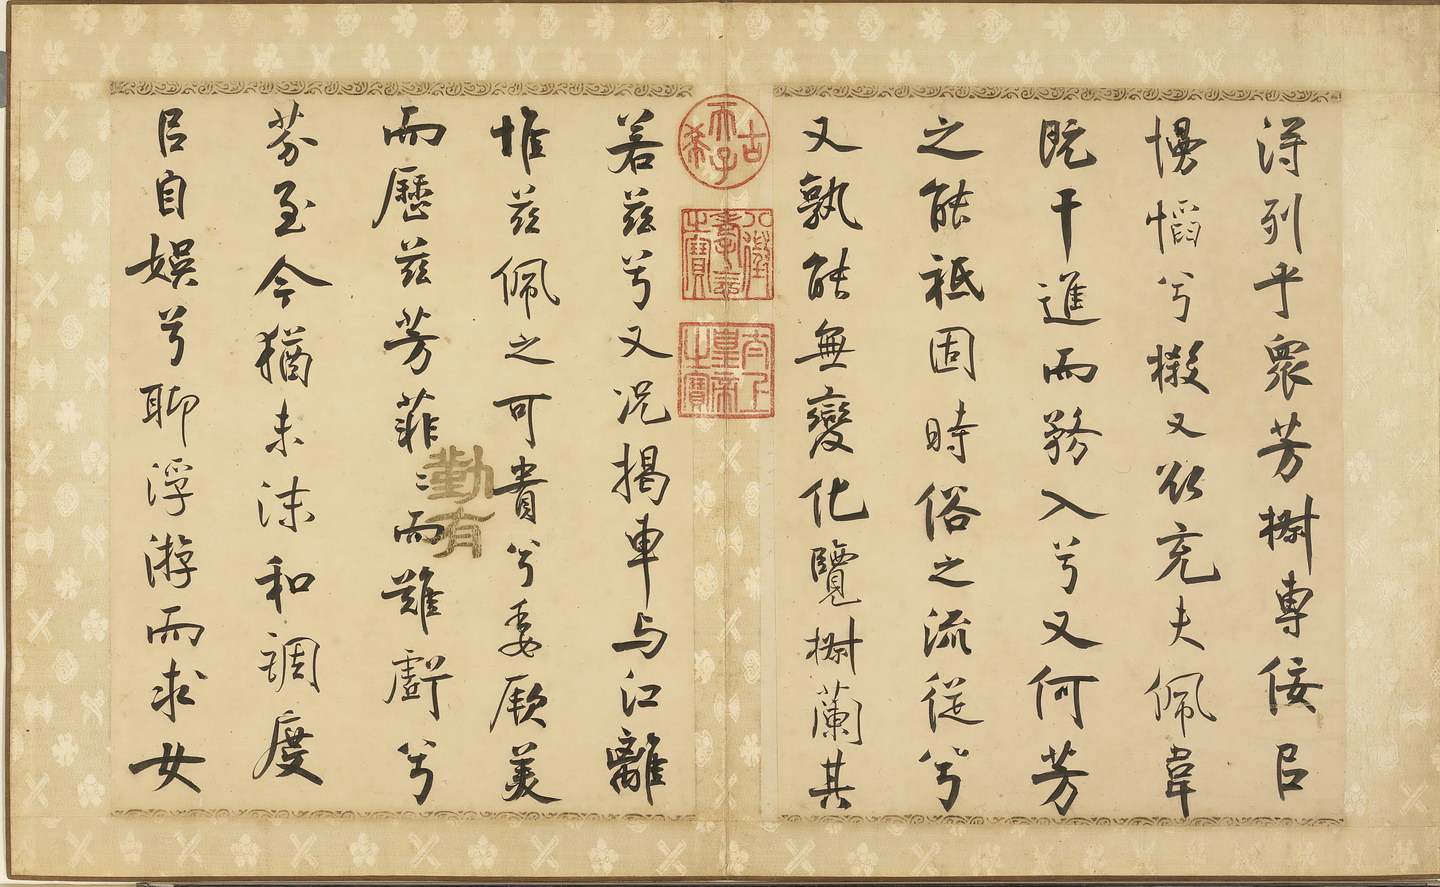 得列乎眾芳椒專佞㠯
慢慆兮樧又欲充夫佩韋
既干進而務入兮又何芳
之能祗固時俗之流從兮
又孰能無變化覽椒蘭其
古希天子
八徵耄念之寶
太上皇帝之寶
若茲兮又況揭車与江離
惟茲佩之可貴兮委厥美
而歷茲芳菲〻而難虧兮
勤有
芬至今猶未沬和調度
㠯自娛兮聊浮游而求女